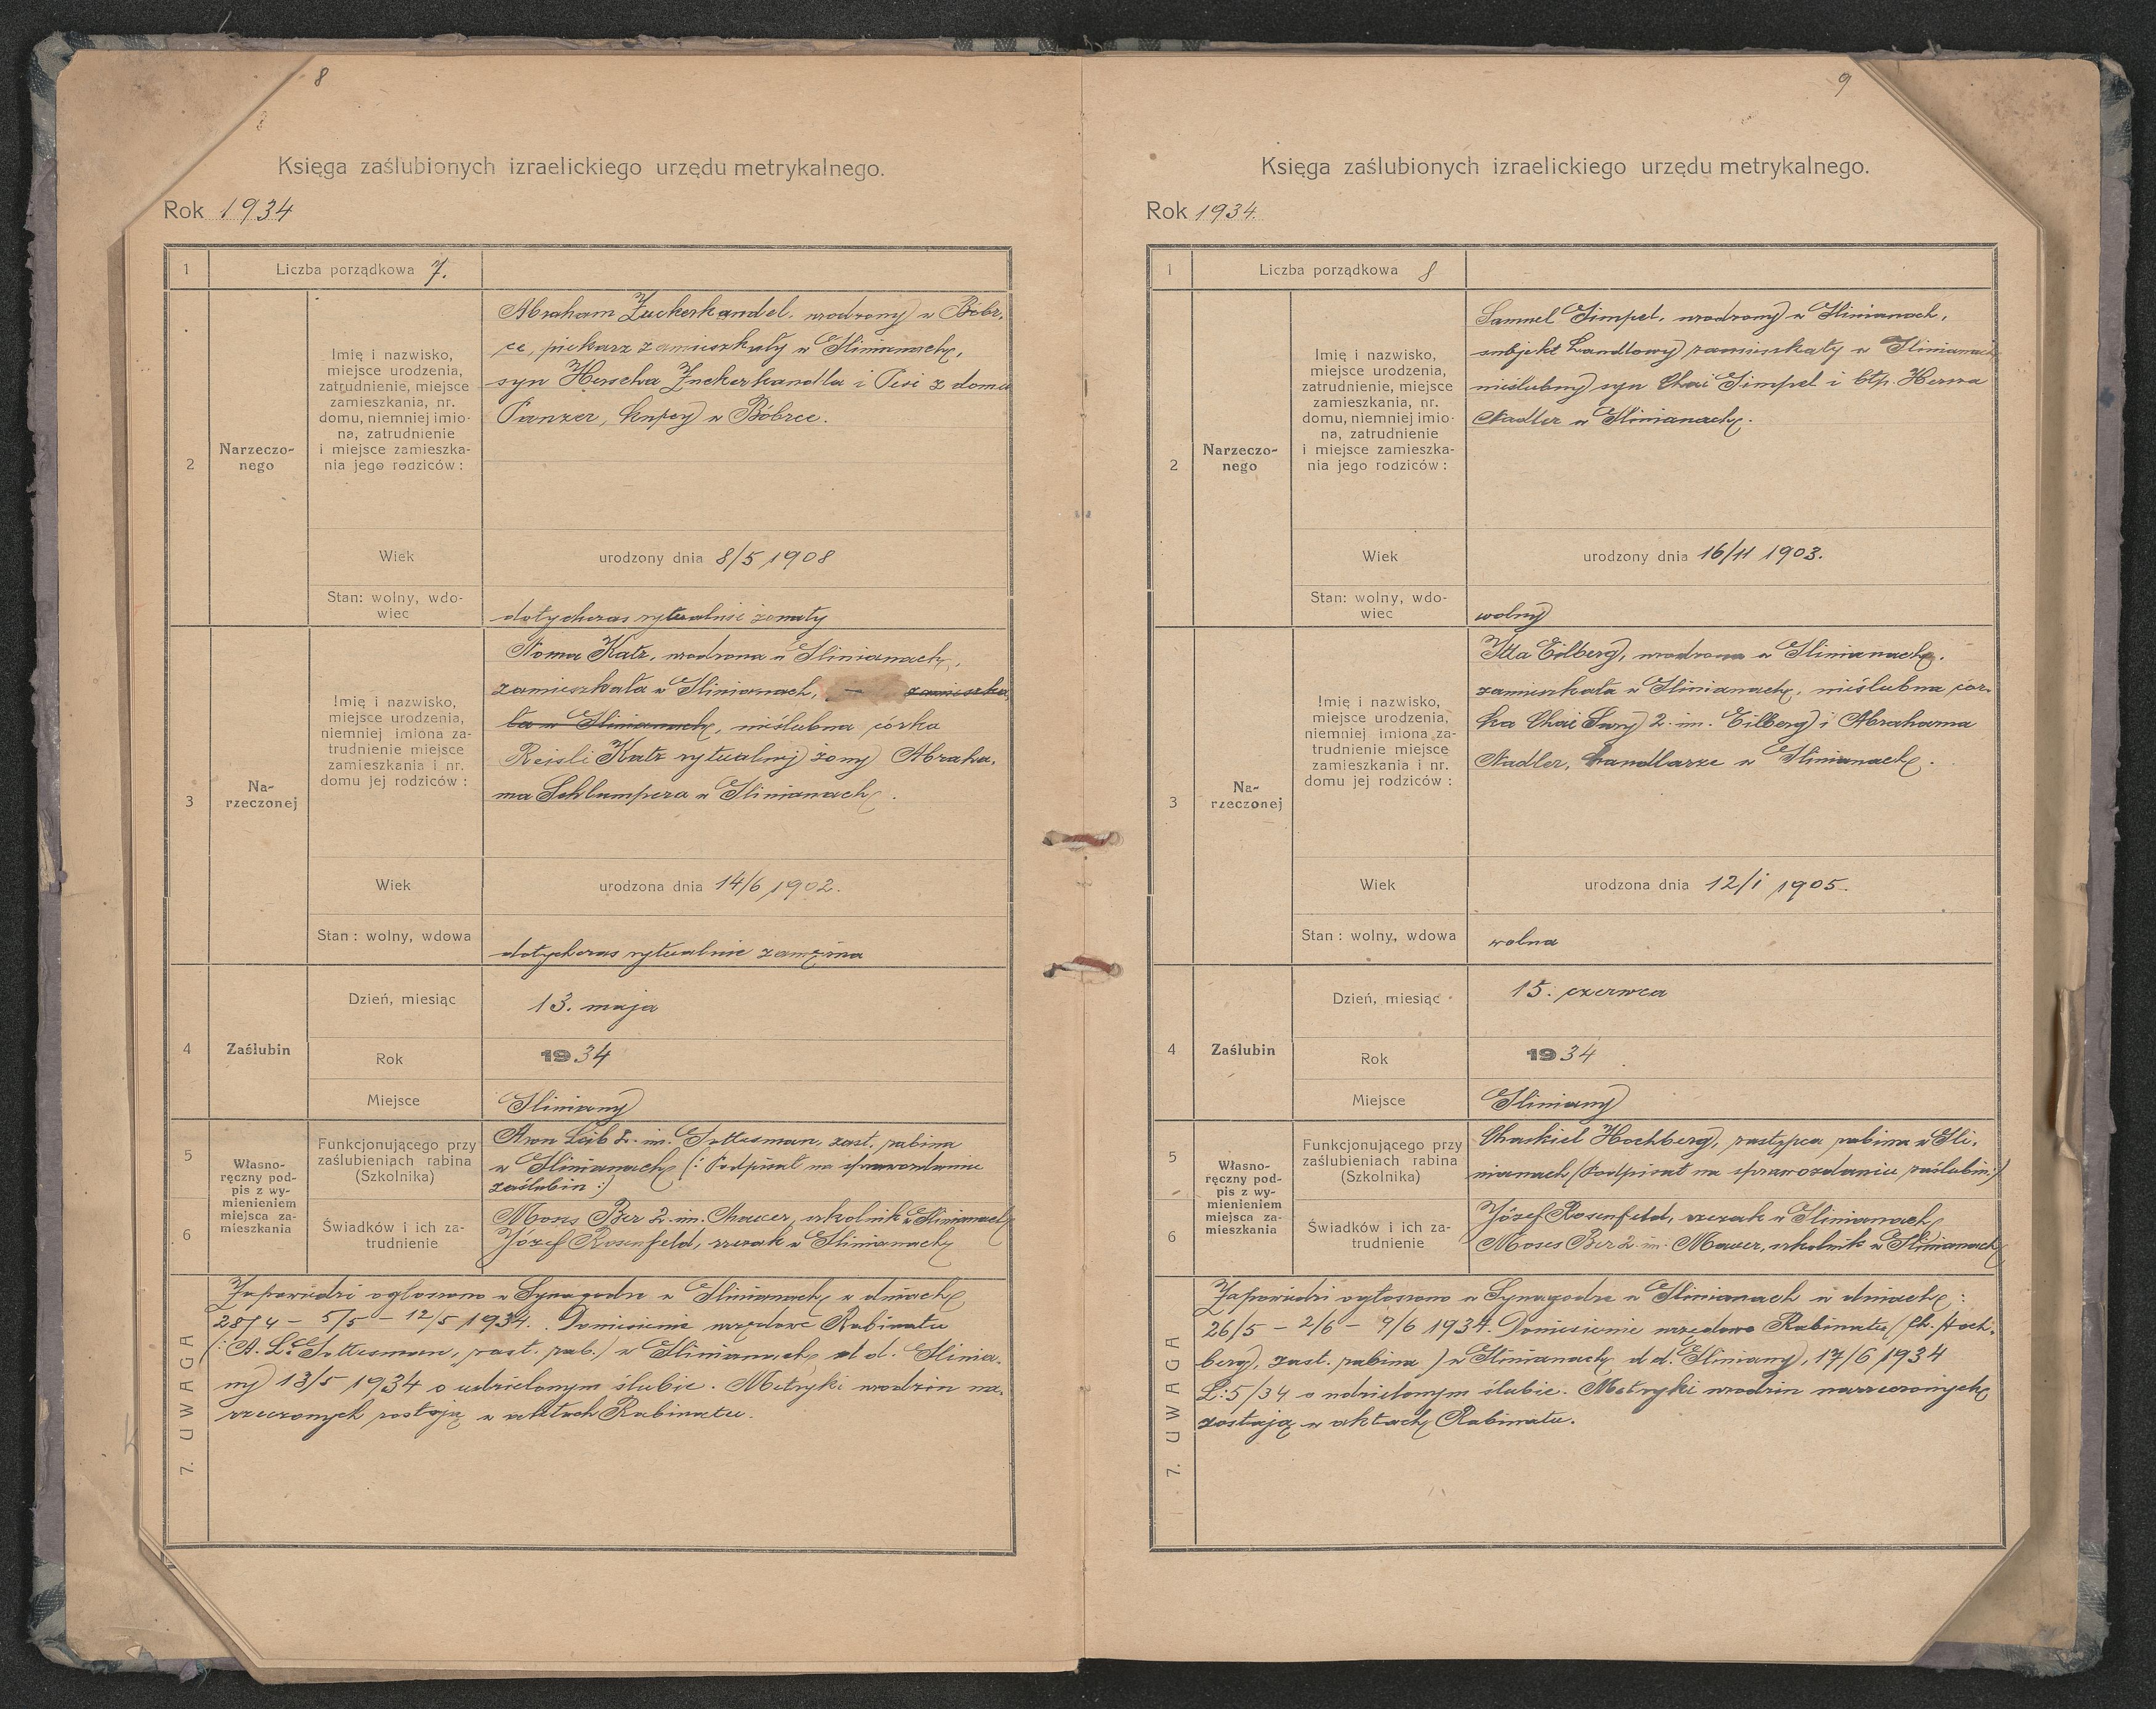 8
Księga zaślubionych izraelickiego urzędu metrykalnego.
Rok 1934
1
Liczba porządkowa 7.
2
Narzeczo-
nego
Imię i nazwisko,
miejsce urodzenia,
zatrudnienie, miejsce
zamieszkania, nr.
domu, niemniej imio-
na, zatrudnienie
i miejsce zamieszka-
nia jego rodziców:
Abraham Zuckerkandel, urodzony w Bóbr-
ce, piekarz zamieszkały w Glinianach,
syn Herscha Zuckerkandla i Pesi z domu
Panzer, kupcy w Bóbrce.
Wiek
urodzony dnia 8/5 1908
Stan: wolny, wdo-
wiec
dotychczas rytualnie żonaty
3
Na-
rzeczonej
Imię i nazwisko,
miejsce urodzenia,
niemniej imiona za-
trudnienie miejsce
zamieszkania i nr.
domu jej rodziców:
Katz, urodzona w Glinianach,
zamieszkała w Glinianach, — zamieszka
ła w Glinianach, nieślubna córka
Reisli Katz rytualnej żony Abraha-
ma Schlumpera w Glinianach.
Wiek
urodzona dnia 14/6 1902.
Stan: wolny, wdowa
dotychczas rytualnie zamężna
4
Zaślubin
Dzień, miesiąc
13. maja
Rok
1934
Miejsce
Gliniany
5
Własno-
ręczny pod-
pis z wy-
mienieniem
miejsca za-
mieszkania
Funkcjonującego przy
zaślubieniach rabina
(Szkolnika)
Aron Leib 2-im. Gottesman, zast. rabina
w Glinianach (: Podpisał na sprawozdaniu
zaślubin :)
6
Świadków i ich za-
trudnienie
Moses Ber 2-im. Mauer, szkolnik w Glinianach
Józef Rosenfeld, rzezak w Glinianach
7. UWAGA
Zapowiedzi ogłoszono w Synagodze w Glinianach w dniach
28/4 – 5/5 – 12/5 1934. Doniesienie urzędowe Rabinatu
(: A. L. Gottesman, zast. rab.) w Glinianach d d. Glinia-
ny 13/5 1934 o udzielonym ślubie. Metryki urodzin na-
rzeczonych zostają w aktach Rabinatu.
9
Księga zaślubionych izraelickiego urzędu metrykalnego.
Rok 1934.
1
Liczba porządkowa 8
2
Narzeczo-
nego
Imię i nazwisko,
miejsce urodzenia,
zatrudnienie, miejsce
zamieszkania, nr.
domu, niemniej imio-
na, zatrudnienie
i miejsce zamieszka-
nia jego rodziców:
Samuel Gimpel, urodzony w Glinianach,
subjekt handlowy zamieszkały w Glinianach
nieślubny syn Chai Gimpel i
Nadler w Glinianach.
Wiek
urodzony dnia 16/11 1903.
Stan: wolny, wdo-
wiec
wolny
3
Na-
rzeczonej
Imię i nazwisko,
miejsce urodzenia,
niemniej imiona za-
trudnienie miejsce
zamieszkania i nr.
domu jej rodziców:
Itta Eilberg, urodzona w Glinianach,
zamieszkała w Glinianach, nieślubna cór-
ka Chai Sury 2-im. Eilberg i Abrahama
Nadler, handlarze w Glinianach.
Wiek
urodzona dnia 12/I 1905.
Stan: wolny, wdowa
wolna
4
Zaślubin
Dzień, miesiąc
15. czerwca
Rok
1934
Miejsce
Gliniany
5
Własno-
ręczny pod-
pis z wy-
mienieniem
miejsca za-
mieszkania
Funkcjonującego przy
zaślubieniach rabina
(Szkolnika)
Chaskiel Hochberg, zastępca rabina w Gli-
nianach (Podpisał na sprawozdaniu zaślubin:)
6
Świadków i ich za-
trudnienie
Józef Rosenfeld, rzezak w Glinianach
Moses Ber 2-im. Mauer, szkolnik w Glinianach
7. UWAGA
Zapowiedzi ogłoszono w Synagodze w Glinianach w dniach:
26/5 – 2/6 – 9/6 1934. Doniesienie urzędowe Rabinatu (Ch. Hoch-
berg, zast. rabina) w Glinianach d d. Gliniany, 17/6 1934
L: 5/34 o udzielonym ślubie. Metryki urodzin narzeczonych
zostają w aktach Rabinatu.